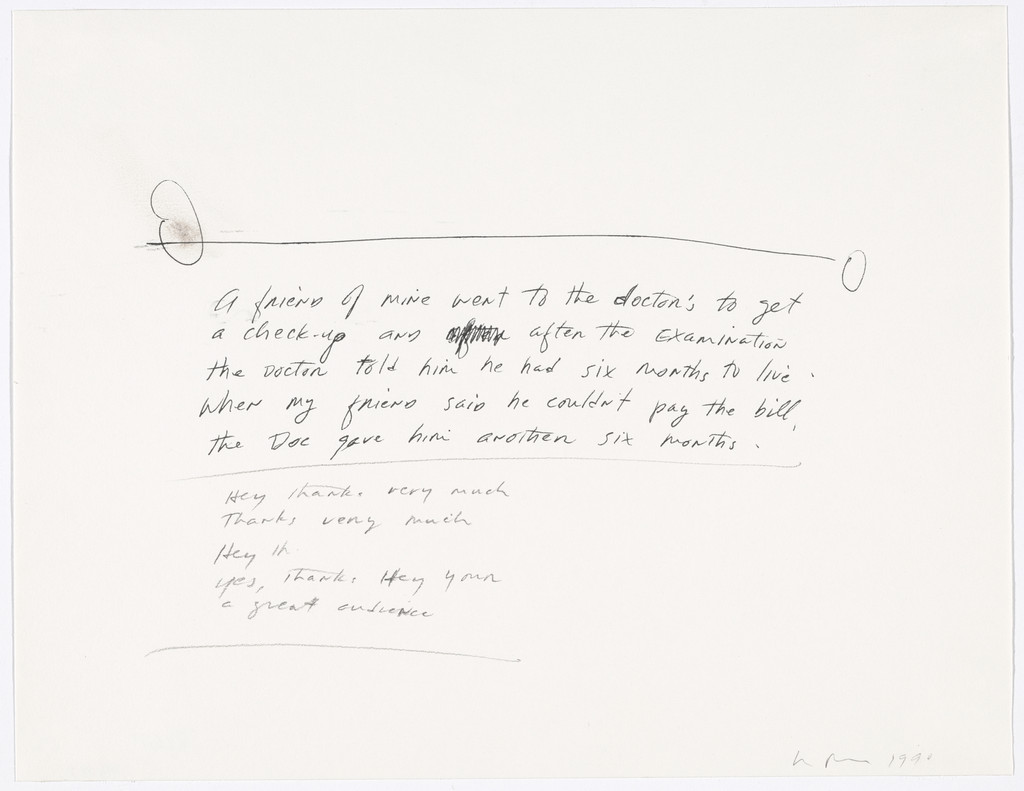 A friend of mine went to the doctor's to get
a check-up and after the Examination
the Doctor told him he had six months to live.
When my friend said he couldn't pay the bill,
the Doc gave him another six months.
Hey thanks very much
Thanks very much
Hey th
yes, thanks Hey your
a great audience
1990